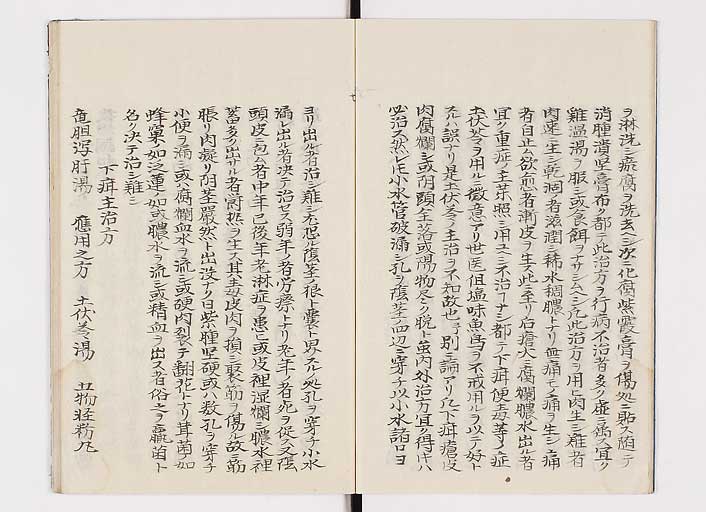 ヲ淋洗シ瘀腐ヲ洗去ヘシ次ニ化腐紫霞膏ヲ傷処ニ貼ス
消腫潰堅膏布ク都テ此治方ヲ行病不治者多ク虚
難温湯ヲ服シ或食餌ヲナサシムヘシ凡此治方ヲ用ヒ肉生シ難者
肉蓮ニ生シ乾涸者滋潤シ稀水稠膿トナリ無痛モノ痛ヲ生シ痛
者自止ム欲愈者漸皮ヲ生ス此ニ至リ石膏火腐爛膿水出ル者
宜ク重症ノ主薬照シ用ユヘシ不治ナシ都テ下疳便毒等ノ症
土伏苓ヲ用ル徴意アリ世医但塩味魚鳥ヲ不戒用ルヲ以テ好ト
スルハ誤ナリ是土伏苓ノ主治ヲ不知故也別ニ論アリ凡下疳瘡皮
肉腐爛シ或陰頭全落或陽物尽ク脱ト虽内外治方宜ク得キハ
必治ス然レ𪜈小水管破漏シ孔ヲ陰茎血辺ニ穿チ以小水諸口ヨ
ヨリ出ル者治シ難シ尤恐ル陰茎ノ根ト囊ト界スル処孔ヲ穿チ小水
漏レ出ル者決テ治セス弱年ノ者労瘵トナリ老年ノ者死ヲ促ス又陰
頭皮ニ包ム者中年已後年老淋症ヲ患ヒ或皮裡湿爛シ膿水裡
蓄多ク出サル者欝熱ヲ生ス其毒皮肉ヲ損シ緊筋ヲ傷ル故ニ筋
脹リ肉凝リ陰茎嚴然ト出没ナク日紫腫堅硬或ハ数孔ヲ穿チ
小便ヲ漏シ或ハ腐爛血水ヲ流シ或硬肉裂テ翻花トナリ茸菌ノ如
蜂窠ノ如泛蓮ノ如或膿水ヲ流シ或精血ヲ出ス者俗之ヲ羸菌ト
名ク決テ治シ難シ
下疳主治方
竜胆瀉肝湯 応用之方 土伏苓湯 五物軽粉丸